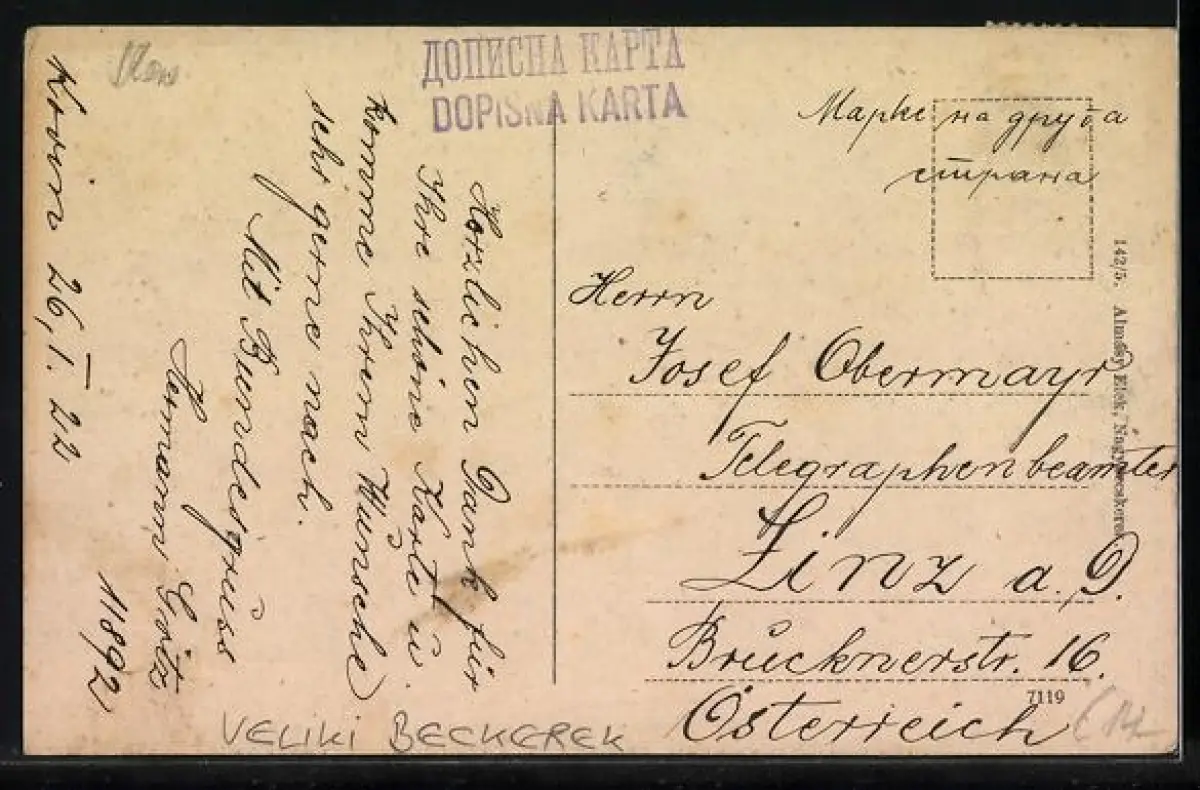 ДОПИСНА КАРТА
DOPISNA KARTA
Марке на друга
страна
Herrn
Josef Obermayr
Telegraphenbeamter
Linz a. D.
Brucknerstr. 16.
Österreich
Herzlichen Dank für
Ihre schöne Karte u.
komme Ihrem Wunsche
sehr gerne nach.
Mit Bundesgruss
Hermann
11892
26. I. 22
142/5. Almásy Elek, Nagybecskerek
7119
VELIKI BECKEREK